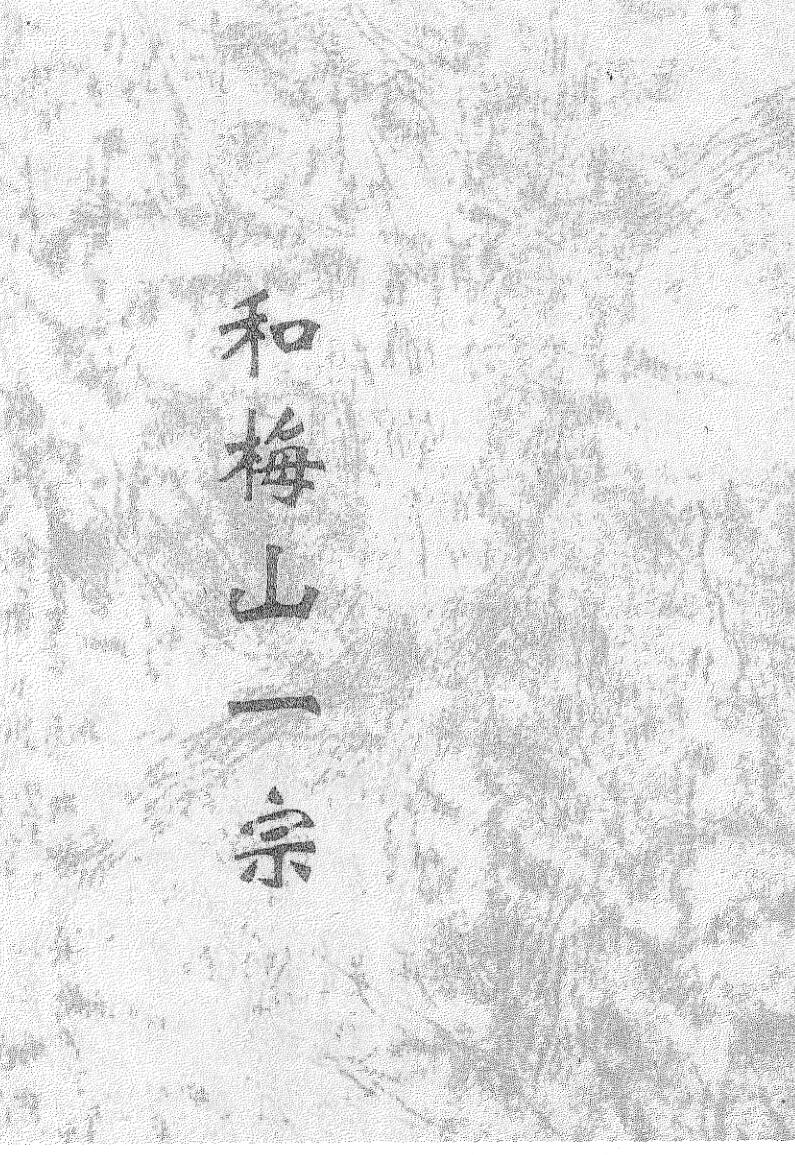 和梅山一宗